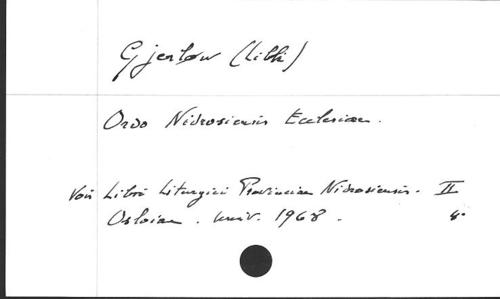 Gjerløw (Lilli)
Ordo Nidrosiensis Ecclesiae.
Voir Libri Liturgici Provinciae Nidrosiensis. II
Osloiae. Univ. 1968. 4°